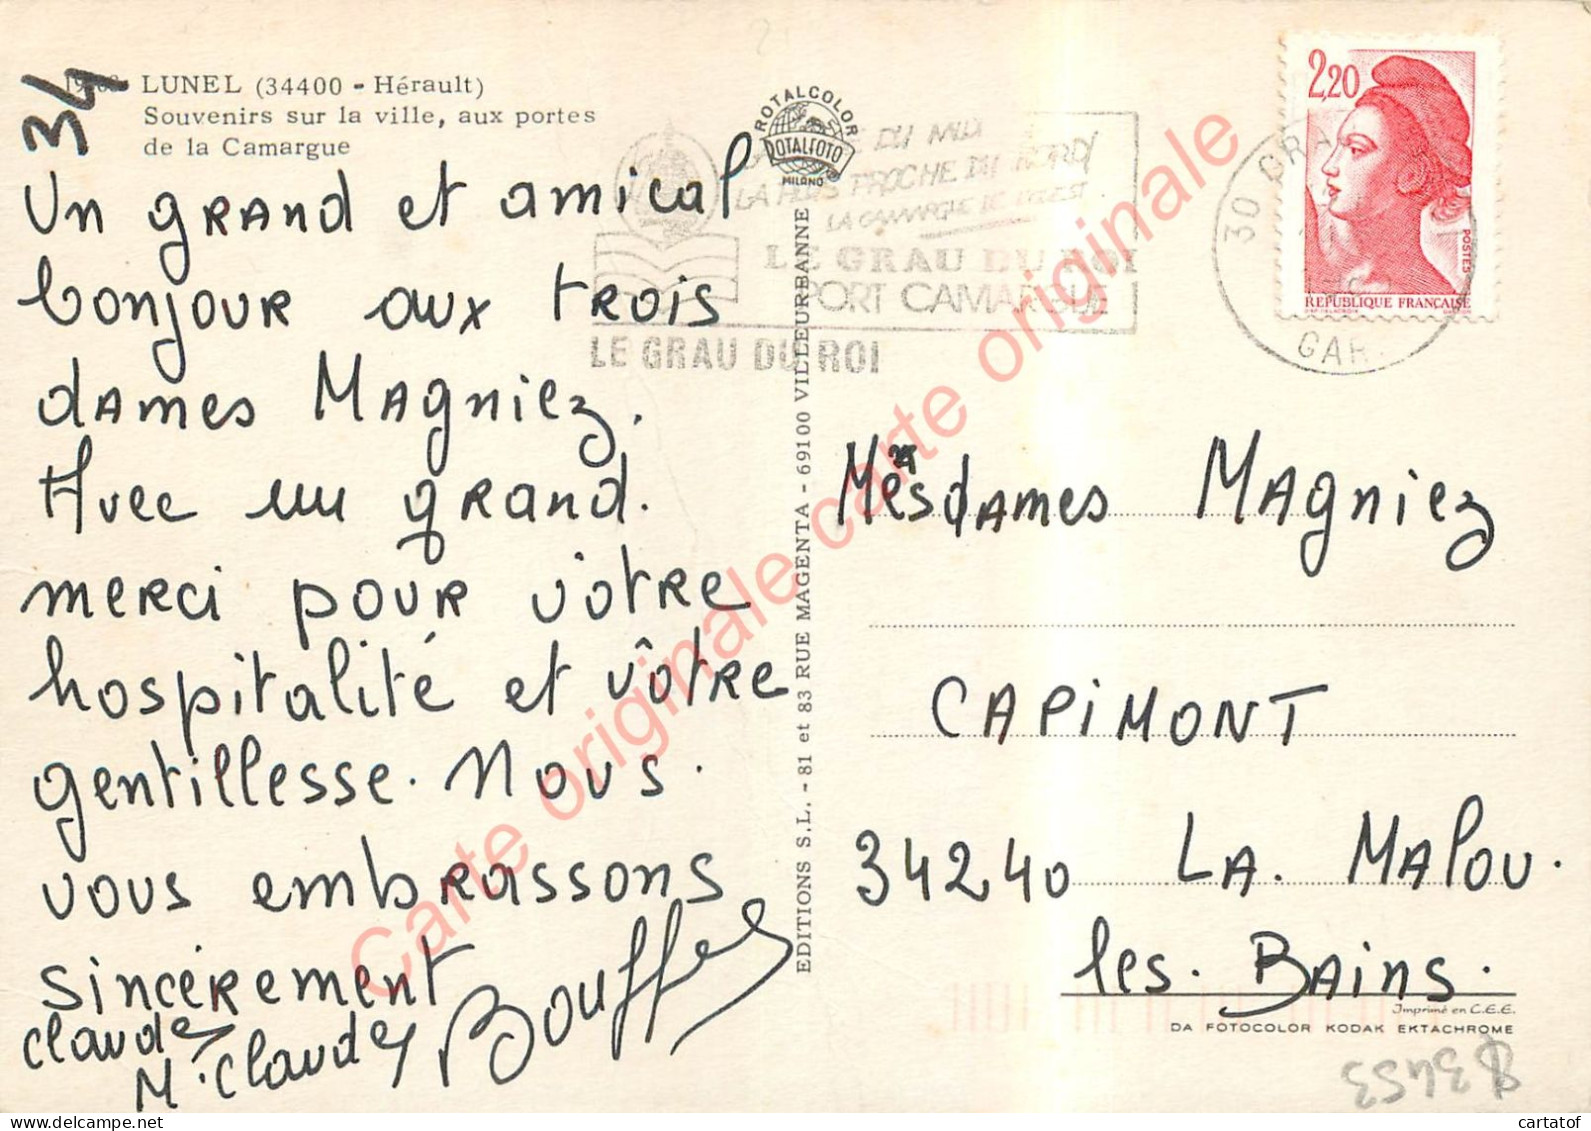 34
LUNEL (34400 - Hérault)
Souvenirs sur la ville, aux portes
de la Camargue
Un grand et amical
bonjour aux trois
dames Magniez.
Avec un grand.
merci pour vôtre
hospitalité et vôtre
gentillesse. Nous.
vous embrassons
sincérement
Claude
M. Claude Bouffes
ROTALCOLOR
ROTALFOTO
MILANO
DU MIDI
LA PLUS PROCHE DU NORD
LA CAMARGUE DE L'OUEST
LE GRAU DU ROI
PORT CAMARGUE
LE GRAU DU ROI
EDITIONS S.L. - 81 et 83 RUE MAGENTA - 69100 VILLEURBANNE
2,20
POSTES
REPUBLIQUE FRANÇAISE
30
GAR
Mesdames Magniez
CAPIMONT
34240 LA. MALOU.
les. BAINS.
Imprimé en C.E.E.
DA FOTOCOLOR KODAK EKTACHROME
3453
Carte originale carte originale
cartatof